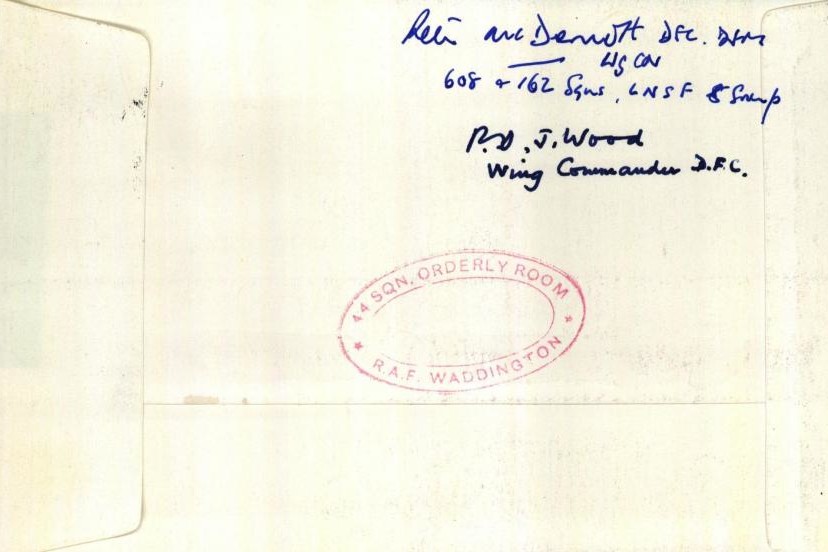 McDermott DFC. DFM
Wg Cdr
608 & 162 Sqns, LNSF 8 Group
P.D.J. Wood
Wing Commander D.F.C.
44 SQN. ORDERLY ROOM
R.A.F. WADDINGTON